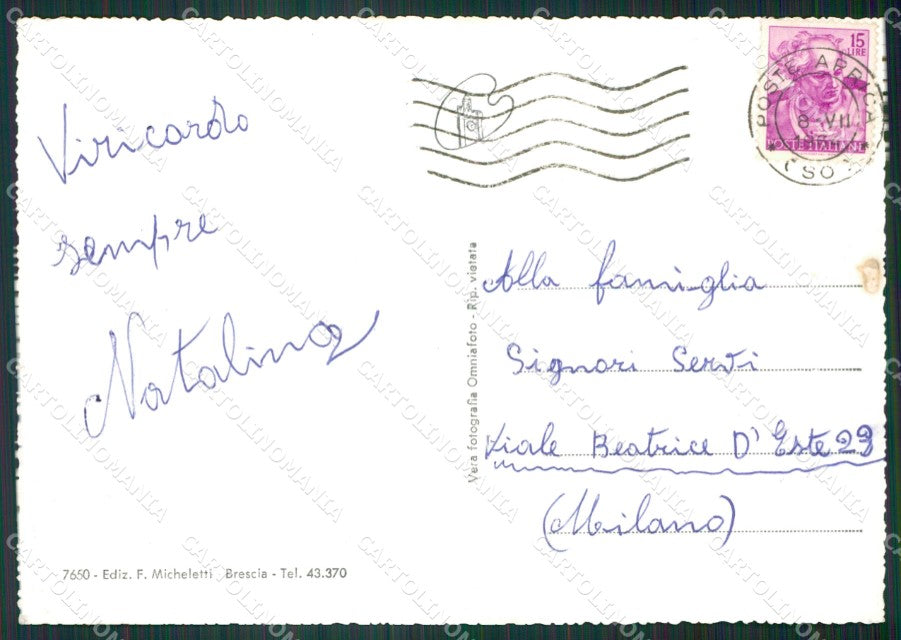 Viricordo
sempre
Natalina
15
LIRE
POSTE ITALIANE
POSTE APRICA
8-VII
(SO)
Vera fotografia Omniafoto - Rip. vietata
Alla famiglia
Signori Servi
Viale Beatrice D'Este 23
(Milano)
7650 - Ediz. F. Micheletti Brescia - Tel. 43.370
CARTOLINOMANIA